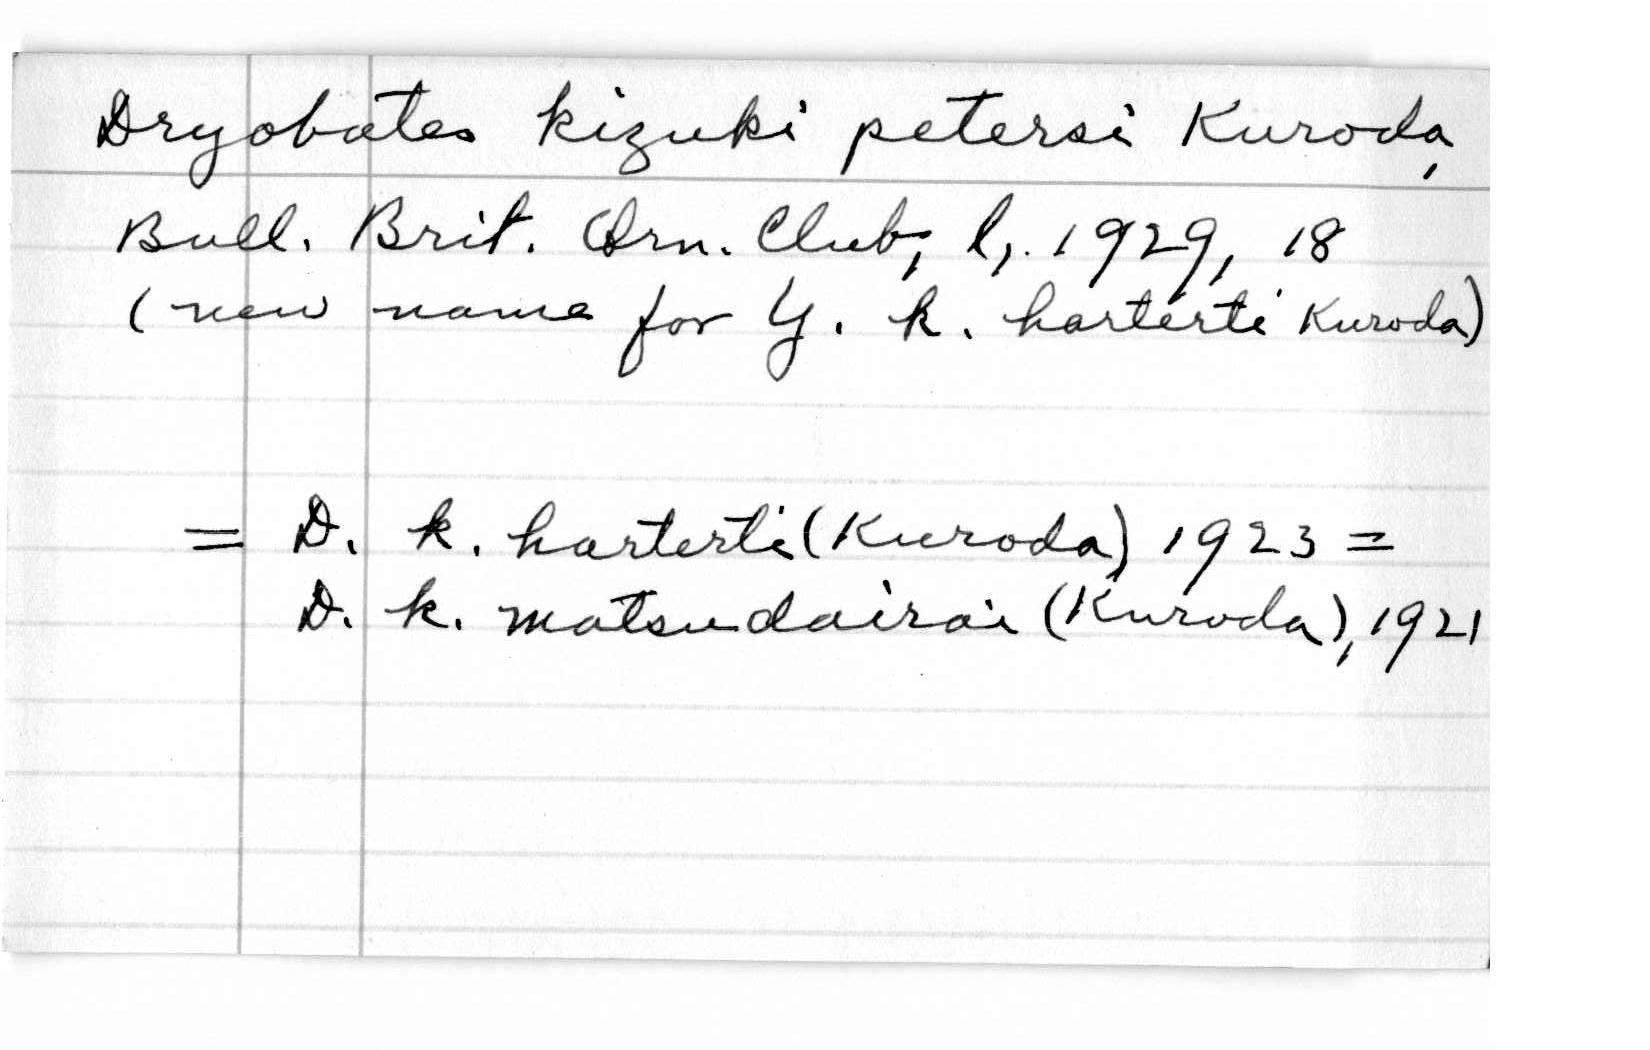 Dryobates kizuki petersi Kuroda,
Bull. Brit. Orn. Club, l, 1929, 18
(new name for Y. k. harterti Kuroda)
= D. k. harterti (Kuroda) 1923 =
D. k. matsudairai (Kuroda), 1921